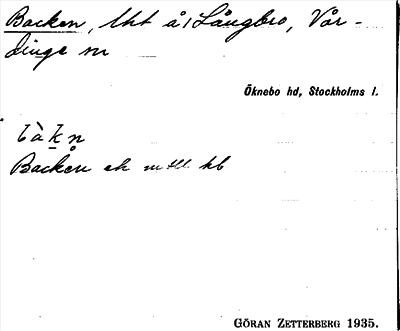 Backen, lht å/Långbro, Vår-
dinge sn
Öknebo hd, Stockholms l.
bàkn̥
Backen ek mtll. kb
GÖRAN ZETTERBERG 1935.